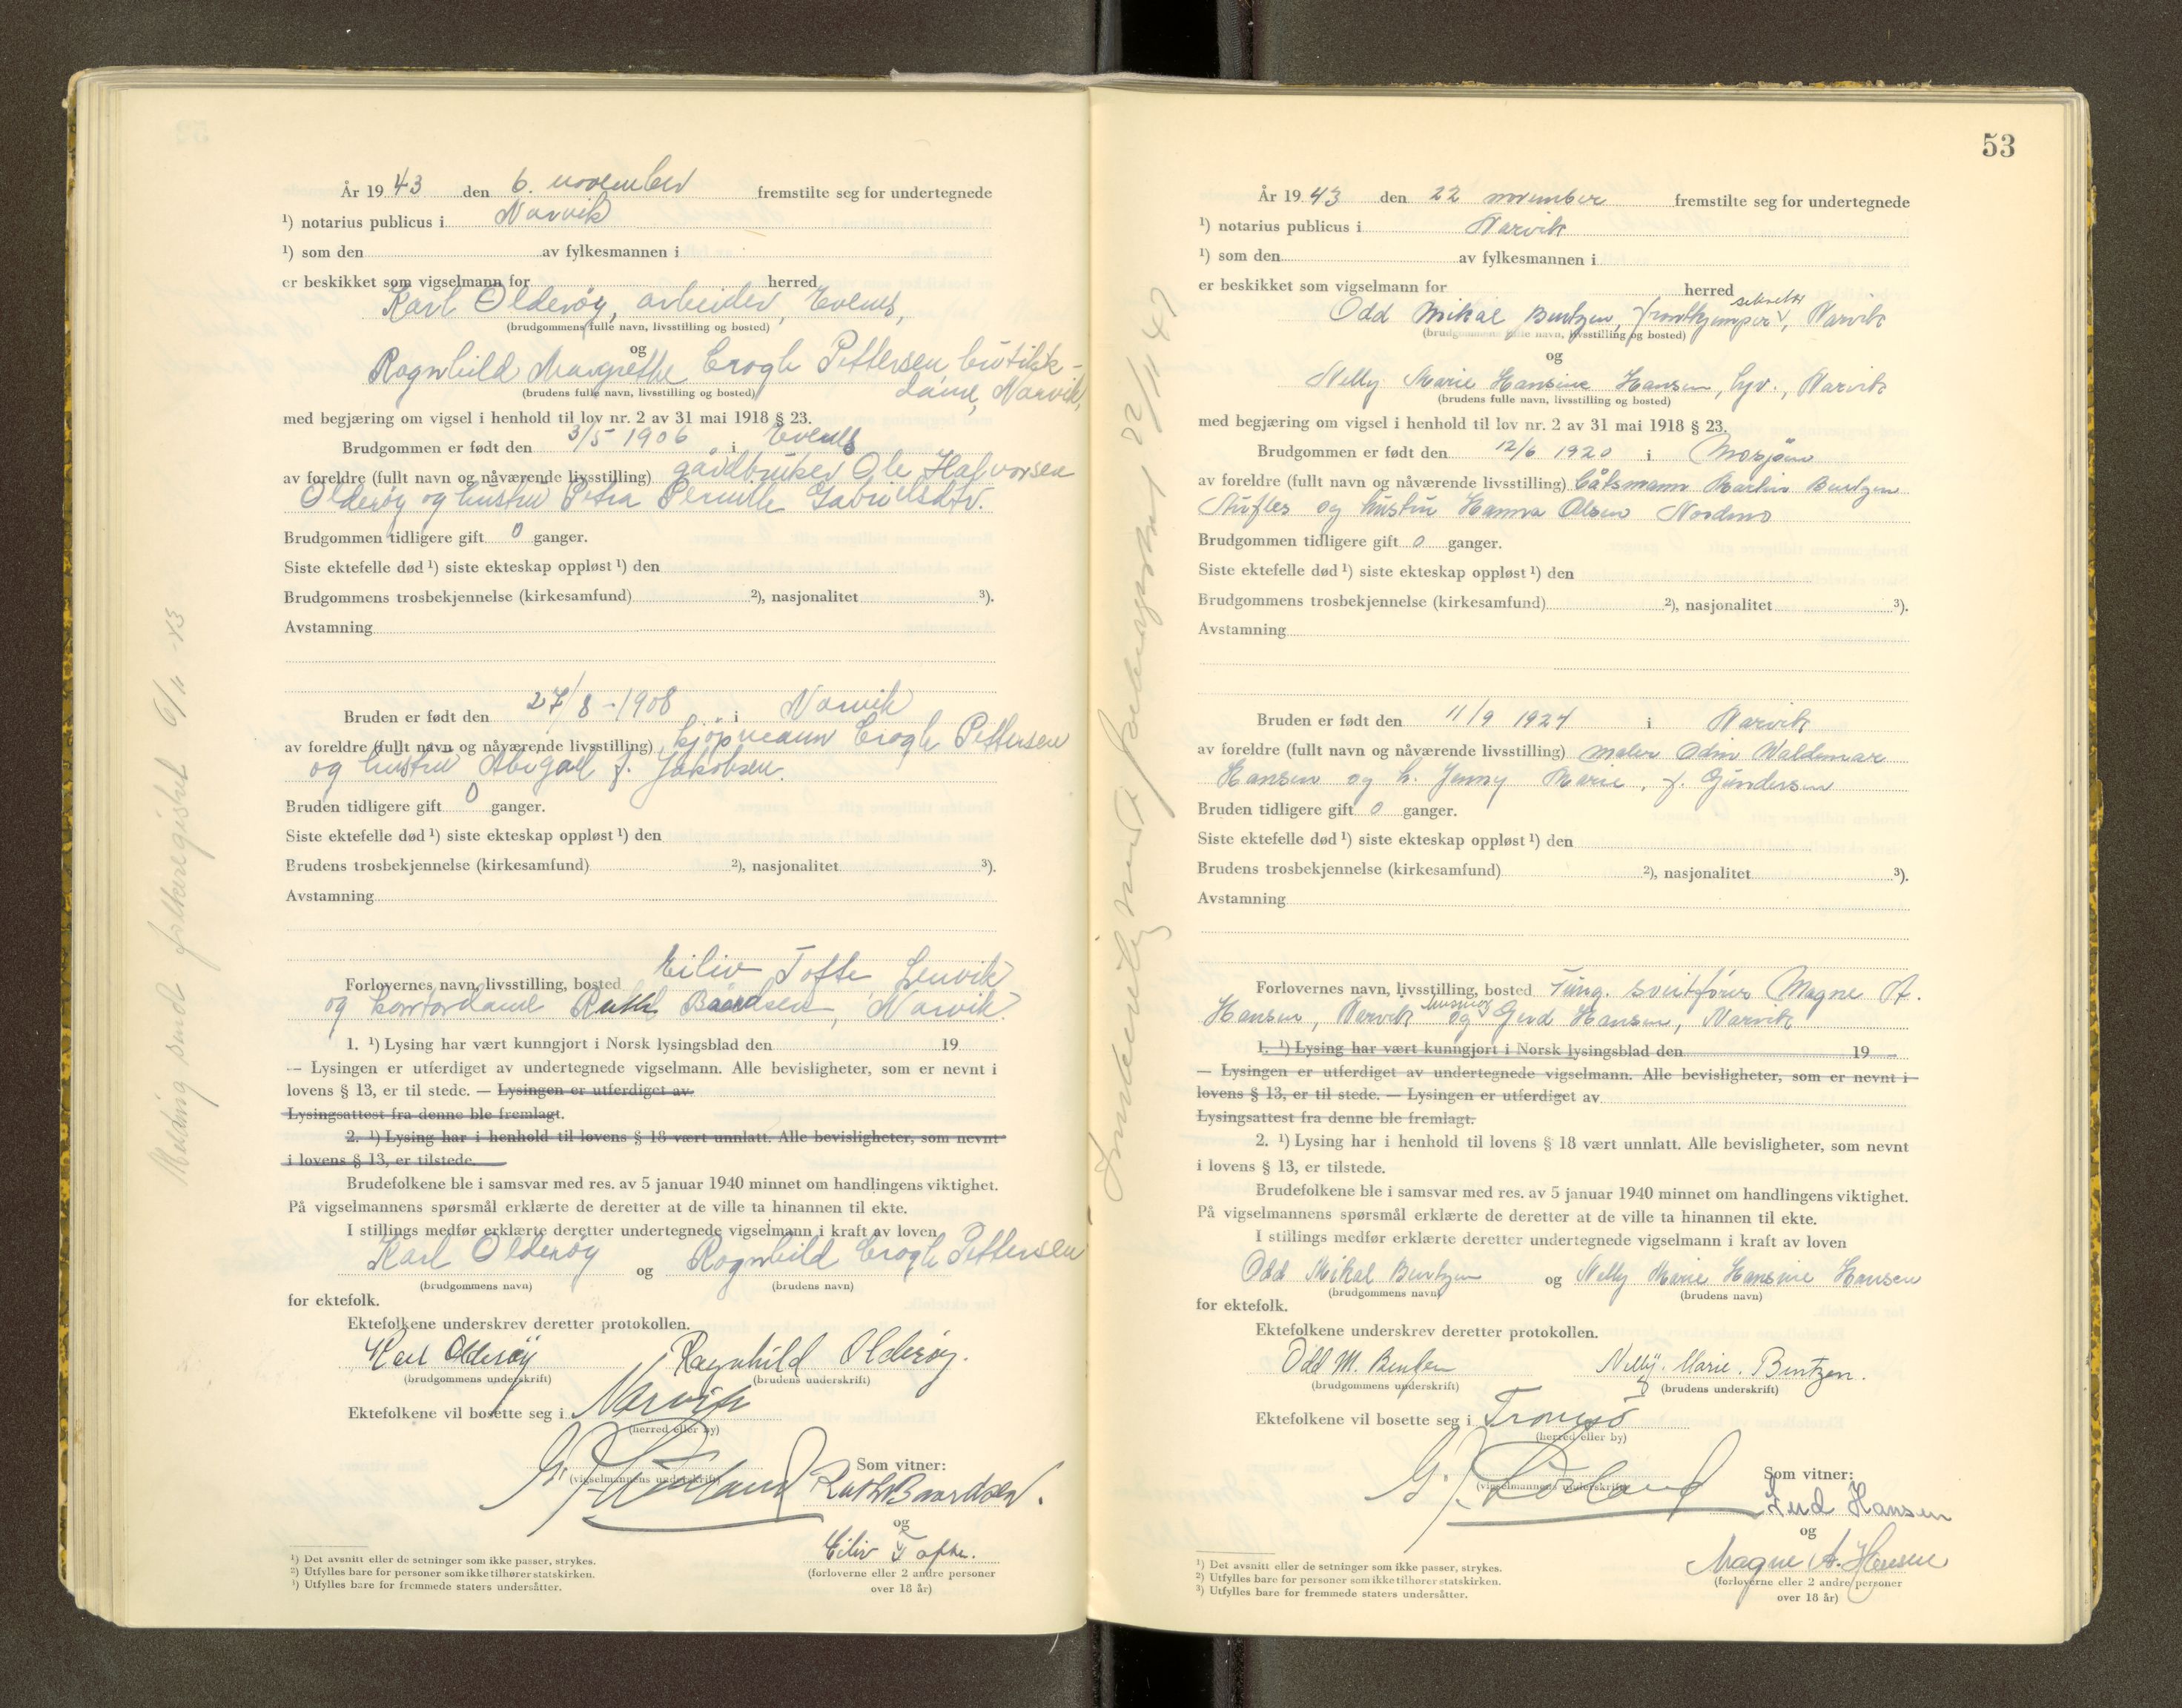 År 1943 den 6. november fremstilte seg for undertegnede
¹) notarius publicus i Narvik
¹) som den av fylkesmannen i
er beskikket som vigselmann for herred
Karl Olderøy, arbeider, Evenes,
(brudgommens fulle navn, livsstilling og bosted)
og
Ragnhild Margrethe Crogh Pettersen, butikk-
dame, Narvik,
(brudens fulle navn, livsstilling og bosted)
med begjæring om vigsel i henhold til lov nr. 2 av 31 mai 1918 § 23.
Brudgommen er født den 3/5 1906 i Evenes
av foreldre (fullt navn og nåværende livsstilling) gårdbruker Ole Halvorsen
Olderöy og hustru Petra Pernille Gabrielsdtr.
Brudgommen tidligere gift 0 ganger.
Siste ektefelle død ¹) siste ekteskap oppløst ¹) den
Brudgommens trosbekjennelse (kirkesamfund) ²), nasjonalitet ³).
Avstamning
Bruden er født den 27/8-1908 i Narvik
av foreldre (fullt navn og nåværende livsstilling) kjøpmann Crogh Pettersen
og hustru Abigael f. Jakobsen.
Bruden tidligere gift 0 ganger.
Siste ektefelle død ¹) siste ekteskap oppløst ¹) den
Brudens trosbekjennelse (kirkesamfund) ²), nasjonalitet ³).
Avstamning
Forlovernes navn, livsstilling, bosted Eiliv Tofte, Lenvik
og kontordame Ruth Baardsen, Narvik.
1. ¹) Lysing har vært kunngjort i Norsk lysingsblad den 19
— Lysingen er utferdiget av undertegnede vigselmann. Alle bevisligheter, som er nevnt i
lovens § 13, er til stede. — Lysingen er utferdiget av
Lysingsattest fra denne ble fremlagt.
2. ¹) Lysing har i henhold til lovens § 18 vært unnlatt. Alle bevisligheter, som nevnt
i lovens § 13, er tilstede.
Brudefolkene ble i samsvar med res. av 5 januar 1940 minnet om handlingens viktighet.
På vigselmannens spørsmål erklærte de deretter at de ville ta hinannen til ekte.
I stillings medfør erklærte deretter undertegnede vigselmann i kraft av loven
Karl Olderöy og Ragnhild Crogh Pettersen
(brudgommens navn) (brudens navn)
for ektefolk.
Ektefolkene underskrev deretter protokollen.
Karl Olderøy Ragnhild Olderøy.
(brudgommens underskrift) (brudens underskrift)
Ektefolkene vil bosette seg i Narvik
(herred eller by)
(vigselmannens underskrift)
Som vitner:
Ruth Baardsen.
og
Eiliv Tofte.
(forloverne eller 2 andre personer
over 18 år)
¹) Det avsnitt eller de setninger som ikke passer, strykes.
²) Utfylles bare for personer som ikke tilhører statskirken.
³) Utfylles bare for fremmede staters undersåtter.
Melding sendt folkeregistret 6/11-43
53
År 1943 den 22 november fremstilte seg for undertegnede
¹) notarius publicus i Narvik
¹) som den av fylkesmannen i
er beskikket som vigselmann for herred
sekretær
Odd Mikal Bentzen, frontkjemper, Narvik
(brudgommens fulle navn, livsstilling og bosted)
og
Nelly Marie Hansine Hansen, hjv., Narvik
(brudens fulle navn, livsstilling og bosted)
med begjæring om vigsel i henhold til lov nr. 2 av 31 mai 1918 § 23.
Brudgommen er født den 12/6 1920 i Mosjøen
av foreldre (fullt navn og nåværende livsstilling) båtsmann Martin Bentzen
og hustru Hanna Olsen Nordmo
Brudgommen tidligere gift 0 ganger.
Siste ektefelle død ¹) siste ekteskap oppløst ¹) den
Brudgommens trosbekjennelse (kirkesamfund) ²), nasjonalitet ³).
Avstamning
Bruden er født den 11/9 1924 i Narvik
av foreldre (fullt navn og nåværende livsstilling) maler Odin Waldemar
Hansen og h. Jenny Marie, f. Gundersen
Bruden tidligere gift 0 ganger.
Siste ektefelle død ¹) siste ekteskap oppløst ¹) den
Brudens trosbekjennelse (kirkesamfund) ²), nasjonalitet ³).
Avstamning
Forlovernes navn, livsstilling, bosted Fung. sveitfører Magne A.
husmor
Hansen, Narvik og Gerd Hansen, Narvik
1. ¹) Lysing har vært kunngjort i Norsk lysingsblad den 19
— Lysingen er utferdiget av undertegnede vigselmann. Alle bevisligheter, som er nevnt i
lovens § 13, er til stede. — Lysingen er utferdiget av
Lysingsattest fra denne ble fremlagt.
2. ¹) Lysing har i henhold til lovens § 18 vært unnlatt. Alle bevisligheter, som nevnt
i lovens § 13, er tilstede.
Brudefolkene ble i samsvar med res. av 5 januar 1940 minnet om handlingens viktighet.
På vigselmannens spørsmål erklærte de deretter at de ville ta hinannen til ekte.
I stillings medfør erklærte deretter undertegnede vigselmann i kraft av loven
Odd Mikal Bentzen og Nelly Marie Hansine Hansen
(brudgommens navn) (brudens navn)
for ektefolk.
Ektefolkene underskrev deretter protokollen.
Odd M. Bentzen Nelly. Marie. Bentzen.
(brudgommens underskrift) (brudens underskrift)
Ektefolkene vil bosette seg i Tromsö
(herred eller by)
(vigselmannens underskrift)
Som vitner:
Gerd Hansen
og
Magne A. Hansen
(forloverne eller 2 andre personer
over 18 år)
¹) Det avsnitt eller de setninger som ikke passer, strykes.
²) Utfylles bare for personer som ikke tilhører statskirken.
³) Utfylles bare for fremmede staters undersåtter.
sendt folkeregistret 22/11 43